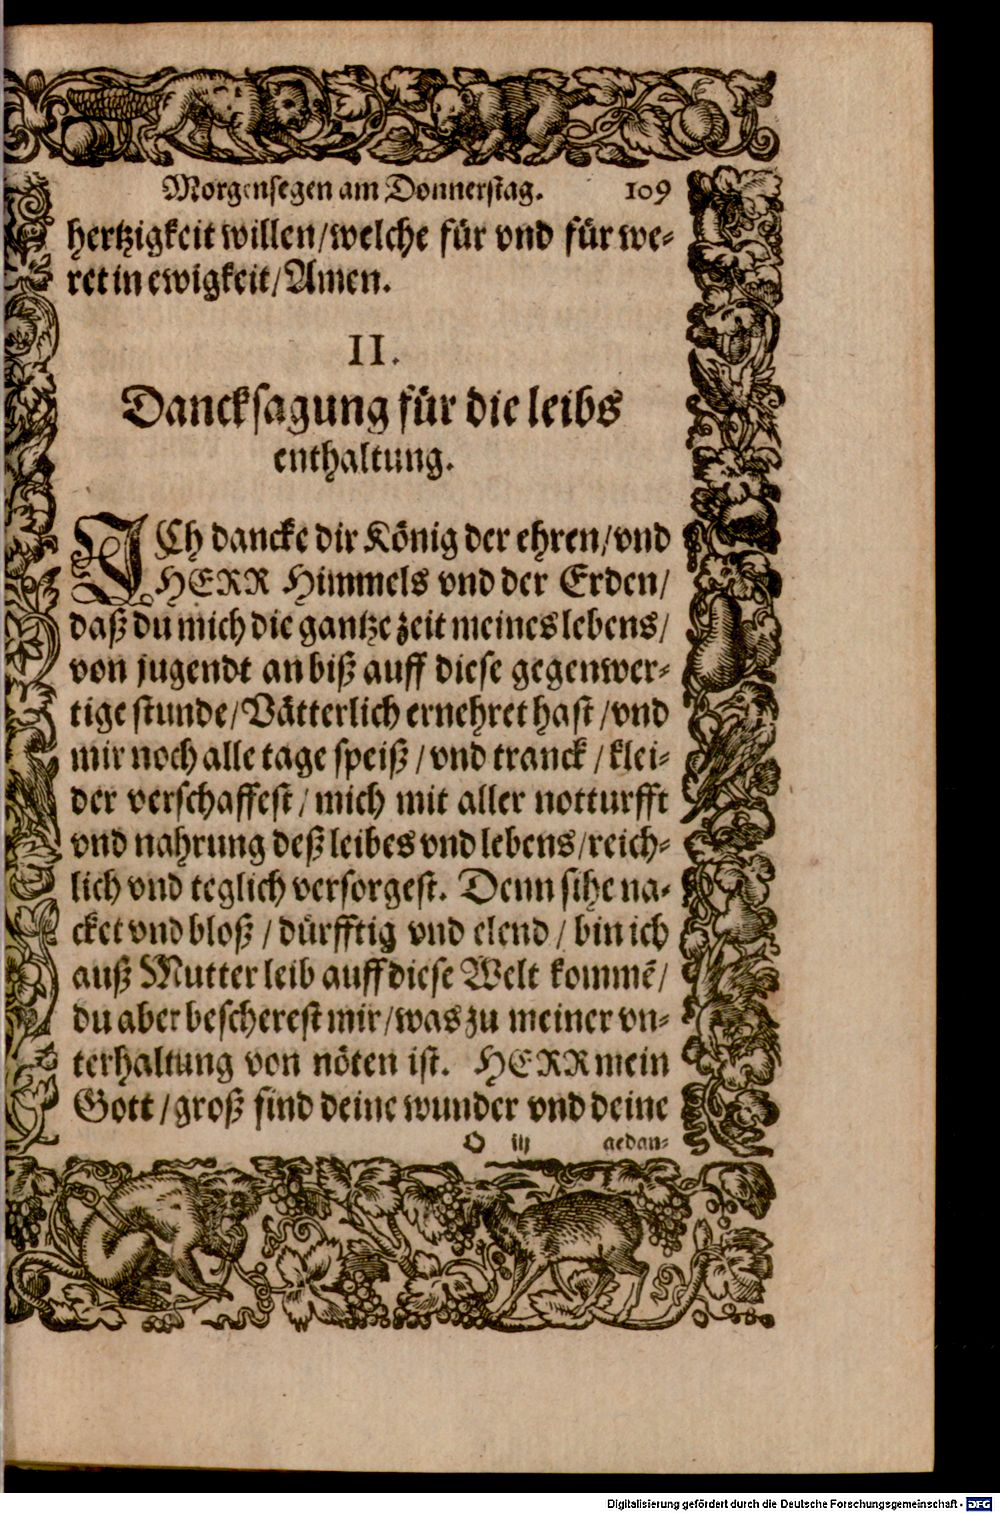 Morgensegen am Donnerstag. 109
hertzigkeit willen/welche für vnd für we-
ret in ewigkeit/Amen.
II.
Dancksagung für die leibs
enthaltung.
ICh dancke dir König der ehren/vnd
HERR Himmels vnd der Erden/
daß du mich die gantze zeit meines lebens/
von jugendt an biß auff diese gegenwer-
tige stunde/Vätterlich ernehret hast/vnd
mir noch alle tage speiß/vnd tranck/klei-
der verschaffest/mich mit aller notturfft
vnd nahrung deß leibes vnd lebens/reich-
lich vnd teglich versorgest. Denn sihe na-
cket vnd bloß/dürfftig vnd elend/bin ich
auß Mutter leib auff diese Welt kommẽ/
du aber bescherest mir/was zu meiner vn-
terhaltung von nöten ist. HERR mein
Gott/groß sind deine wunder vnd deine
O iij gedan-
Digitalisierung gefördert durch die Deutsche Forschungsgemeinschaft - DFG